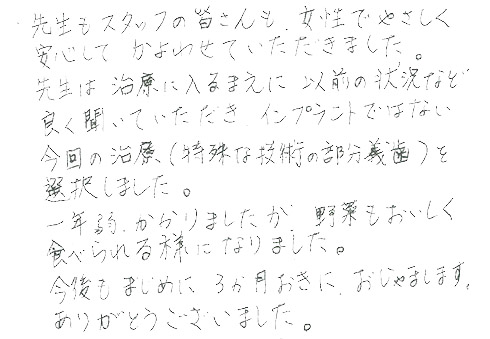 先生もスタッフの皆さんも、女性でやさしく
安心して かよわせていただきました。
先生は 治療に入るまえに 以前の状況など
良く聞いていただき、インプラントではない
今回の治療(特殊な技術の部分義歯)を
選択しました。
一年弱、かかりましたが、野菜もおいしく
食べられる様になりました。
今後もまじめに 3か月おきに、おじゃまします。
ありがとうございました。